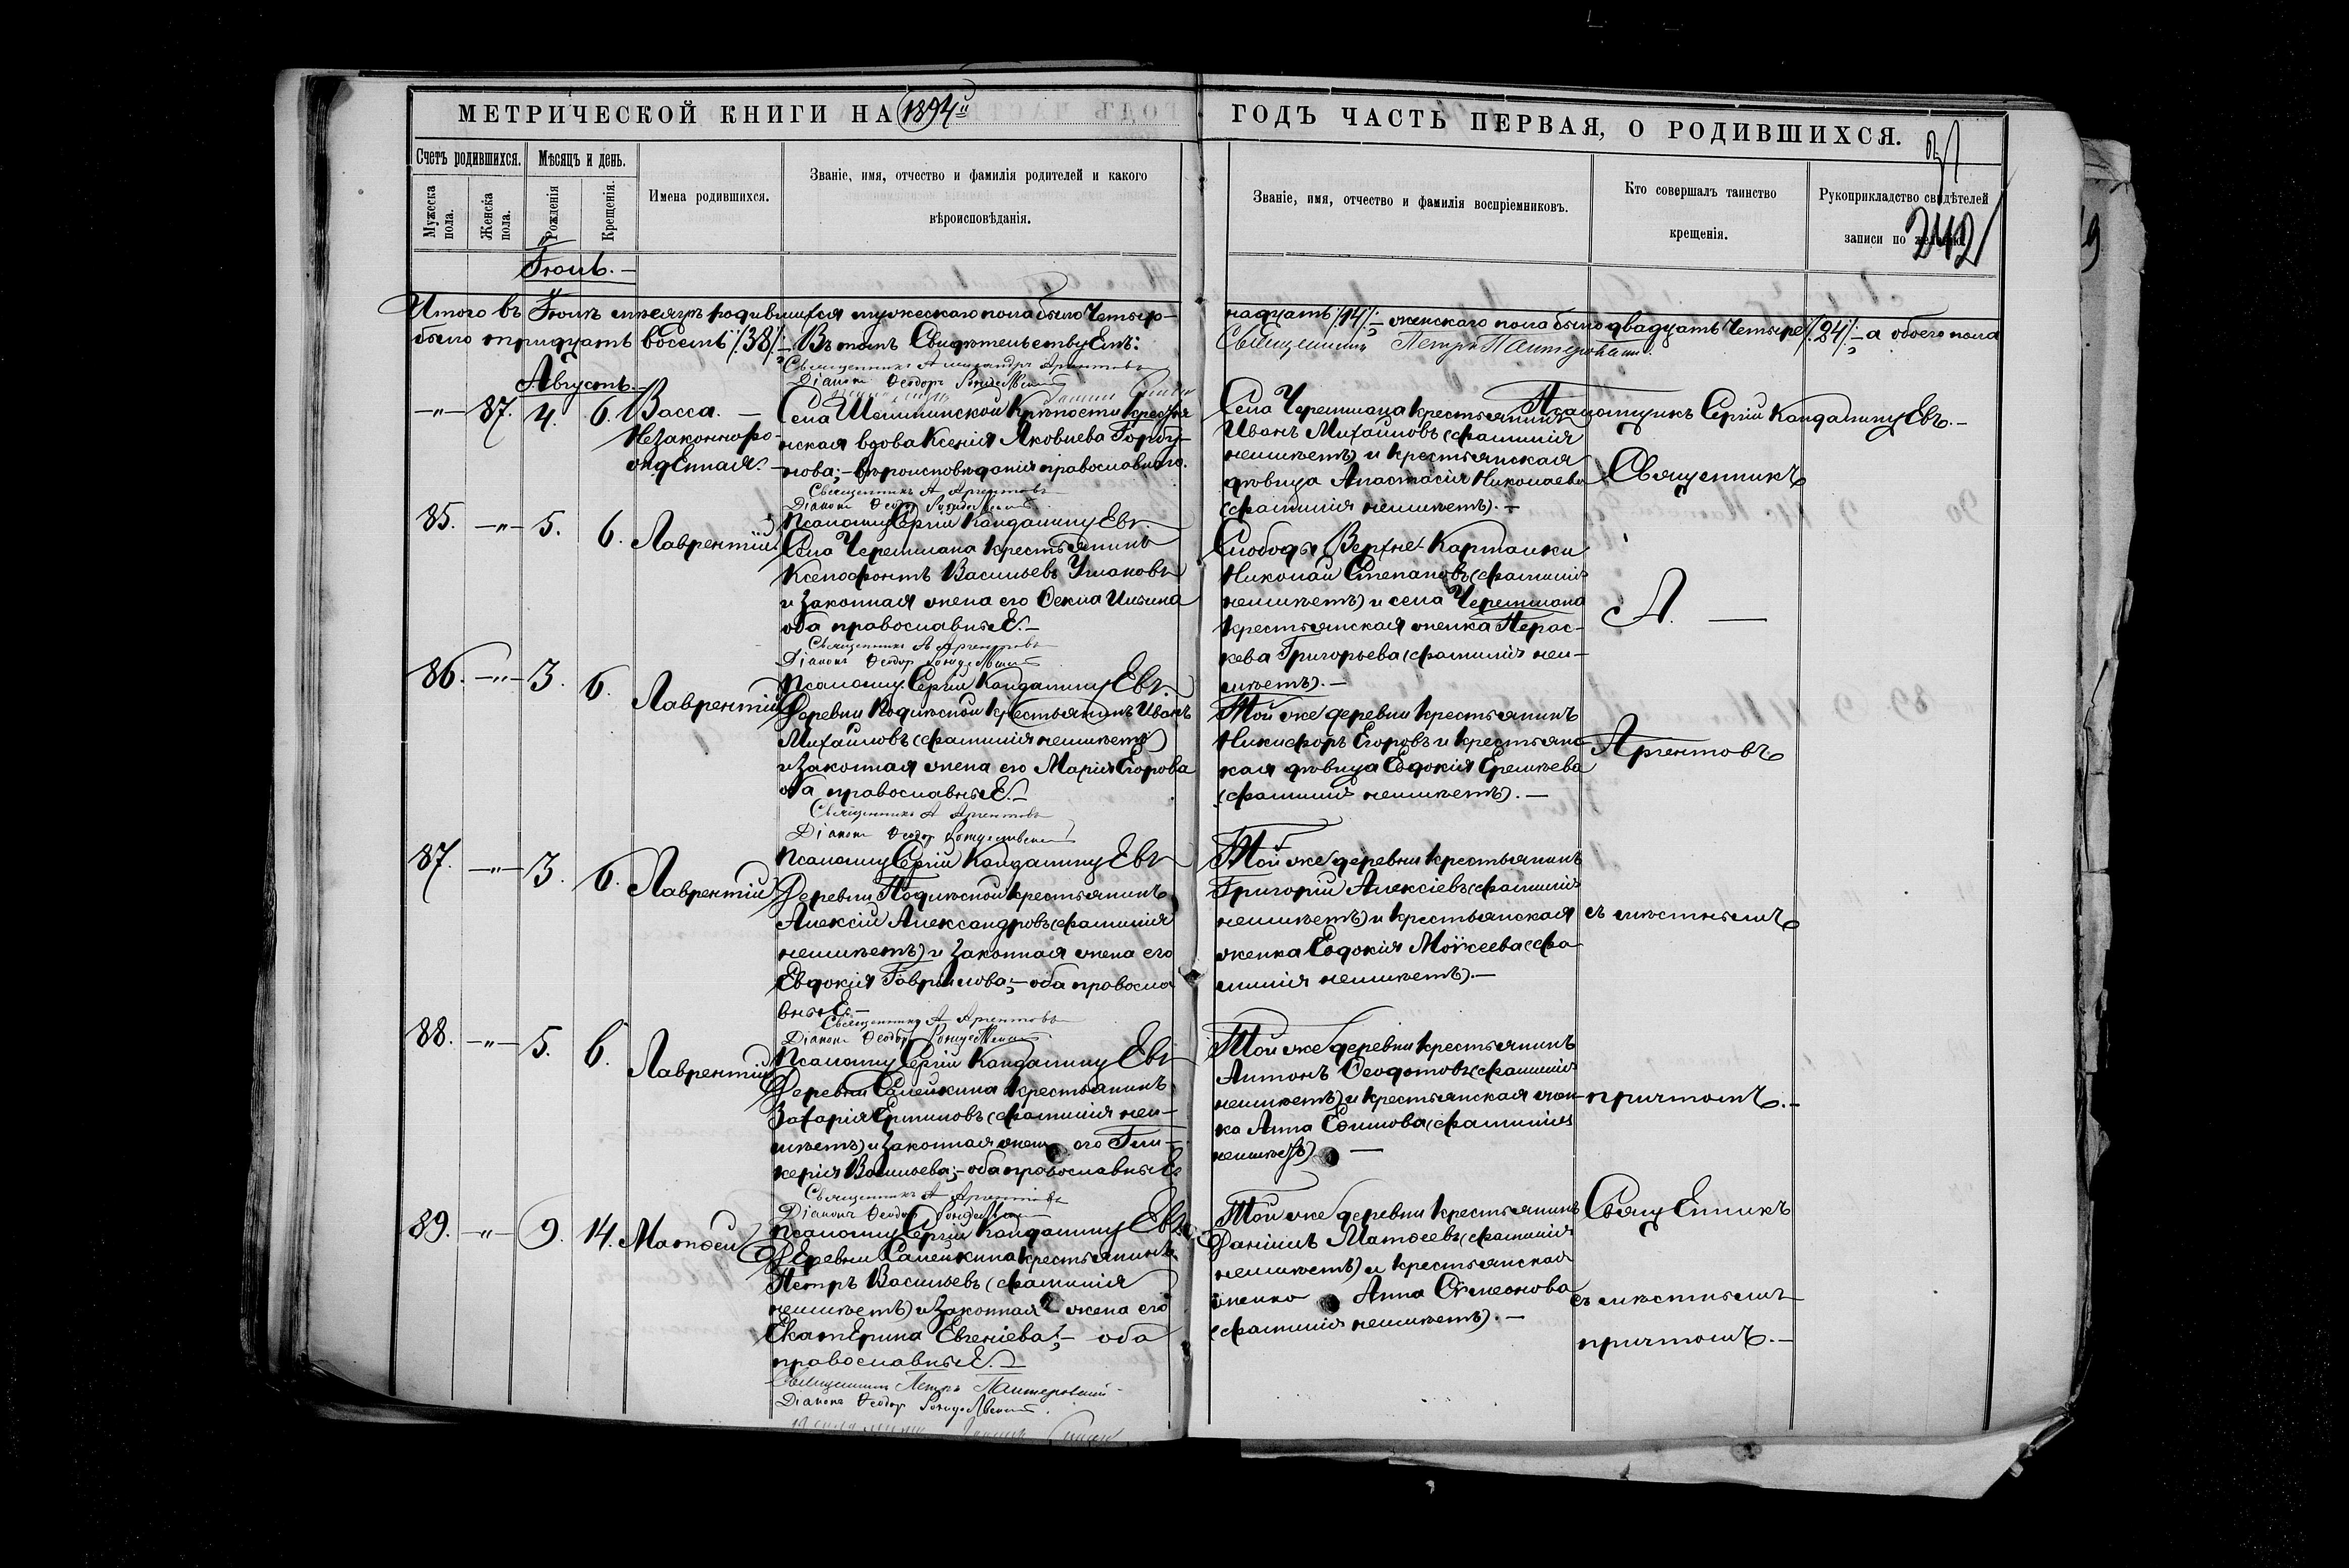 МЕТРИЧЕСКОЙ КНИГИ НА 1894й
ГОДЪ ЧАСТЬ ПЕРВАЯ, О РОДИВШИХСЯ.
242
Счетъ родившихся.
Мѣсяцъ и день.
Мужеска пола.
Женска пола.
Рожденія
Крещенія.
Имена родившихся.
Званіе, имя, отчество и фамилія родителей и какого
вѣроисповѣданія.
Званіе, имя, отчество и фамилія воспріемниковъ.
Кто совершалъ таинство
крещенія.
Рукоприкладство свидѣтелей
записи по желанію.
Іюль.-
Итого въ Іюлѣ мѣсяцѣ родившихся мужескаго пола было Четыр-
надцать /:14:/;- женскаго пола было двадцать Четыре /:24:/;- а обоего пола
было тридцать восемь /:38:/;- Въ томъ Свидѣтельствуемъ:
Священникъ Петръ Пантеровскій.
Священникъ Александръ Аргентовъ
Діаконъ Ѳеодоръ
Псаломщикъ Сергій Кандалинцевъ.-
Августъ.-
-"- 87. 4. 6. Васса. -
Незаконноро-
жденная.-
Села Шешминской Крѣпости Крестья
нская вдова Ксенія Яковлева Горбу-
нова;- вѣроисповѣданія православнаго.
Села Черемшана крестьянинъ
Иванъ Михайловъ (фамилія
неимѣетъ) и крестьянская
дѣвица Анастасія Николаева
(фамилія неимѣетъ).-
Священникъ
Священникъ А Аргентовъ
Діаконъ Ѳеодор
Псаломщ Сергій Кандалинцевъ.
85. -"- 5. 6. Лаврентій.
Села Черемшана Крестьянинъ
Ксенофонтъ Васильевъ Ушаковъ
и Законная жена его Ѳекла Ильина
оба православные.-
Слободы Верхне-Кармалки
Николай Степановъ (фамилія
неимѣетъ) и села Черемшана
крестьянская женка Парас-
кева Григорьева (фамилія неи-
мѣетъ).-
А. -
Священникъ А Аргентовъ
Діаконъ Ѳеодор
Псаломщ Сергій Кандалинцевъ.
86. -"- 3. 6. Лаврентій
Деревни Подлѣсной Крестьянинъ Иванъ
Михайловъ (фамилія неимѣетъ)
и Законная жена его Марія Егорова
оба православные.-
Той же деревни крестьянинъ
Никифоръ Егоровъ и крестьянс
кая дѣвица Евдокія Еремѣева
(фамилія неимѣетъ).-
Аргентовъ
Священникъ А Аргентовъ
Діаконъ Ѳеодор
Псаломщ Сергій Кандалинцевъ
87. -"- 3. 6. Лаврентій
Деревни Подлѣсной Крестьянинъ
Алексій Александровъ (фамилія
неимѣетъ) и Законная жена его
Евдокія Гаврилова;- оба правосла
вные.-
Той же деревни крестьянинъ
Григорій Алексіевъ (фамилія
неимѣетъ) и крестьянская
женка Евдокія Моѵсеева (фа
милія неимѣетъ).-
съ мѣстнымъ
Священникъ А Аргентовъ
Діаконъ Ѳеодор
Псаломщ Сергій Кандалинцевъ
88. -"- 5. 6. Лаврентій
Деревни Салейкина Крестьянинъ
Захарія Ермиловъ (фамилія неи-
мѣетъ) и Законная жена его Гли-
керія Васильева;- оба православные
Той же деревни крестьянинъ
Антонъ Ѳеодотовъ (фамилія
неимѣетъ) и крестьянская жен-
ка Анна Ефимова (фамилія
неимѣетъ) -
причтомъ.-
Священникъ А Аргентовъ
Діаконъ Ѳеодор
Псаломщ Сергій Кандалинцевъ
89. -"- 9. 14. Матѳей
Деревни Салейкина крестьянинъ
Петръ Васильевъ (фамилія
неимѣетъ) и Законная жена его
Екатерина Евгеніева;- оба
православные.-
Той же деревни крестьянинъ
Даніилъ Матѳеевъ (фамилія
неимѣетъ) и крестьянская
женка Анна Симеонова
(фамилія неимѣетъ).-
Священникъ
съ мѣстнымъ
причтомъ.-
Священникъ Петръ Пантеровскій
Діаконъ Ѳеодор